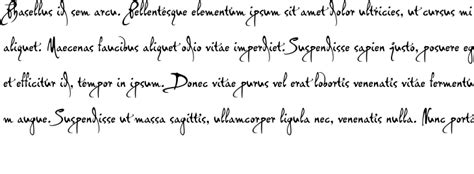 Phasellus id sem arcu. Pellentesque elementum ipsum sit amet dolor ultricies, ut cursus mi
aliquet. Maecenas faucibus aliquet odio vitae imperdiet. Suspendisse sapien justo, posuere eg
et efficitur id, tempor in ipsum. Donec vitae purus vel erat lobortis venenatis vitae fermentu
m augue. Suspendisse ut massa sagittis, ullamcorper ligula nec, venenatis nulla. Nunc porta